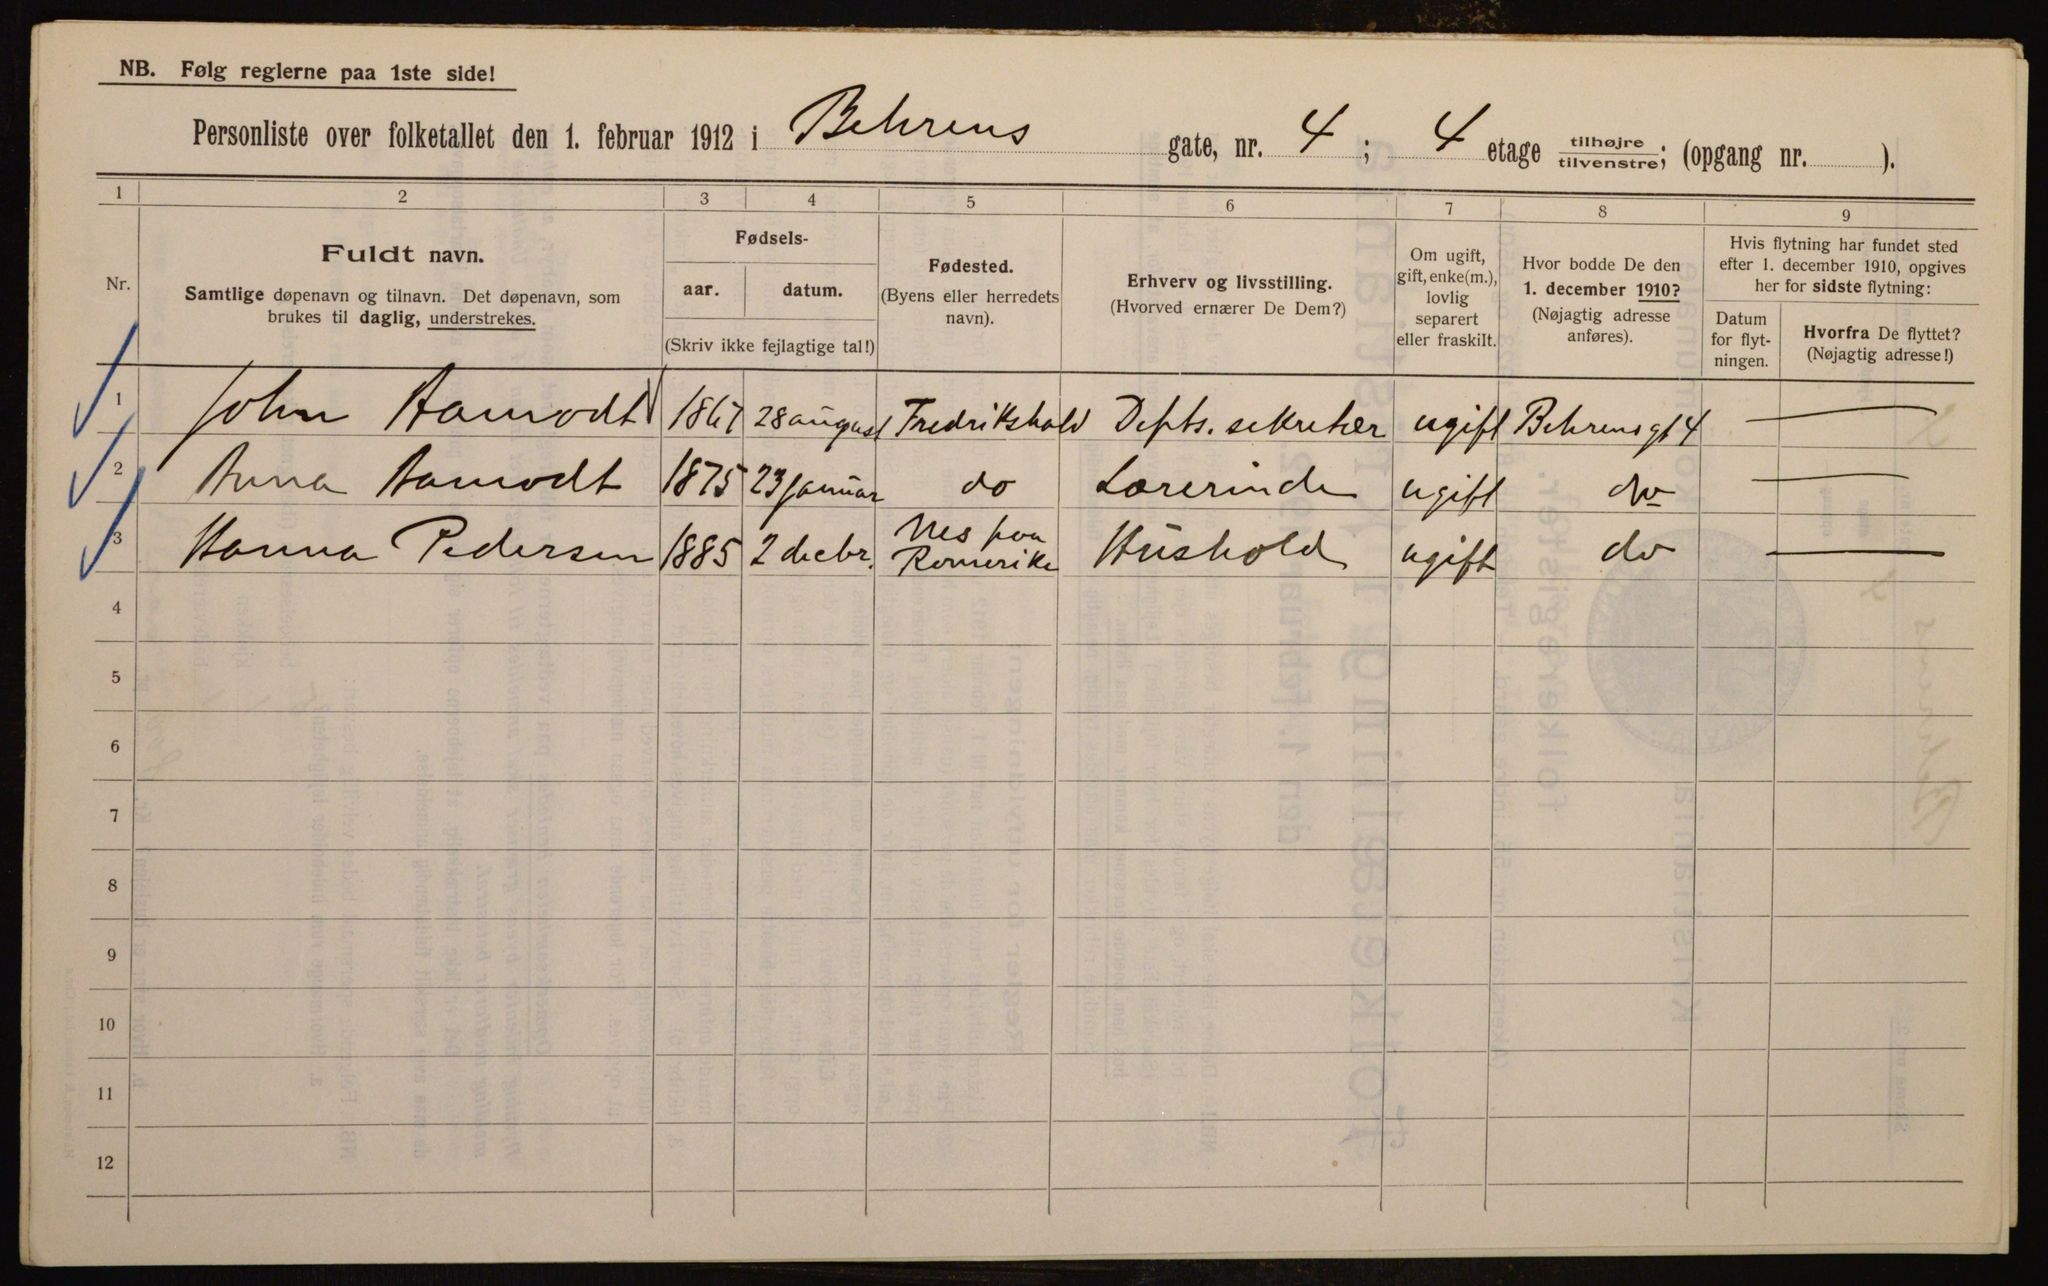 NB. Følg reglerne paa 1ste side!
Personliste over folketallet den 1. februar 1912 i Behrens gate, nr. 4 ; 4 etage tilhøjre/tilvenstre; (opgang nr. ).
1 2 3 4 5 6 7 8 9
Nr.
Fuldt navn.
Samtlige døpenavn og tilnavn. Det døpenavn, som
brukes til daglig, understrekes.
Fødsels-
aar. datum.
(Skriv ikke fejlagtige tal!)
Fødested.
(Byens eller herredets
navn).
Erhverv og livsstilling.
(Hvorved ernærer De Dem?)
Om ugift,
gift, enke(m.),
lovlig
separert
eller fraskilt.
Hvor bodde De den
1. december 1910?
(Nøjagtig adresse
anføres).
Hvis flytning har fundet sted
efter 1. december 1910, opgives
her for sidste flytning:
Datum
for flyt-
ningen.
Hvorfra De flyttet?
(Nøjagtig adresse!)
1 John Aamodt 1867 28 august Fredrikshald Depts. sekretær ugift Behrensgt 4 —
2 Anna Aamodt 1875 23 januar do Lærerinde ugift do —
3 Hanna Pedersen 1885 2 decbr. Nes paa
Romerike Hushold ugift do —
4
5
6
7
8
9
10
11
12